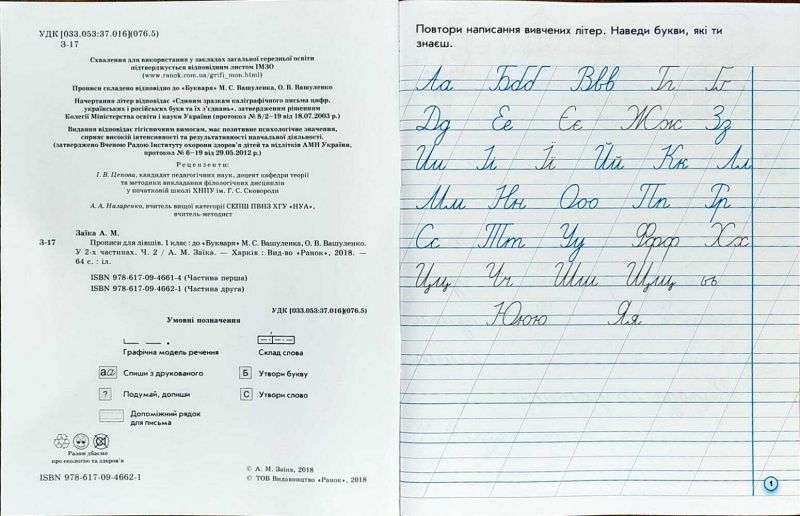 УДК [033.053:37.016](076.5)
З-17
Схвалення для використання у закладах загальної середньої освіти
підтверджується відповідним листом ІМЗО
(www.ranok.com.ua/grifi_mon.html)
Прописи складено відповідно до «Букваря» М. С. Вашуленка, О. В. Вашуленко
Начертання літер відповідає «Єдиним зразкам каліграфічного письма цифр,
українських і російських букв та їх з'єднань», затвердженим рішенням
Колегії Міністерства освіти і науки України (протокол № 8/2–19 від 18.07.2003 р.)
Видання відповідає гігієнічним вимогам, має позитивне психологічне значення,
сприяє високій інтенсивності та результативності навчальної діяльності.
(затверджено Вченою Радою Інституту охорони здоров'я дітей та підлітків АМН України,
протокол № 6–19 від 29.05.2012 р.)
Рецензенти:
І. В. Цепова, кандидат педагогічних наук, доцент кафедри теорії
та методики викладання філологічних дисциплін
у початковій школі ХНПУ ім. Г. С. Сковороди
А. А. Назаренко, вчитель вищої категорії СЕПІШ ПВНЗ ХГУ «НУА»,
вчитель-методист
Заїка А. М.
З-17 Прописи для лівшів. 1 клас : до «Букваря» М. С. Вашуленка, О. В. Вашуленко.
У 2-х частинах. Ч. 2 / А. М. Заїка. — Харків : Вид-во «Ранок», 2018. —
64 с. : іл.
ISBN 978-617-09-4661-4 (Частина перша)
ISBN 978-617-09-4662-1 (Частина друга)
УДК [033.053:37.016](076.5)
Умовні позначення
Графічна модель речення
Склад слова
аа Спиши з друкованого
Б Утвори букву
? Подумай, допиши
С Утвори слово
Допоміжний рядок
для письма
Разом дбаємо
про екологію та здоров'я
ISBN 978-617-09-4662-1
© А. М. Заїка, 2018
© ТОВ Видавництво «Ранок», 2018
Повтори написання вивчених літер. Наведи букви, які ти
знаєш.
Аа Ббб Ввв Гг Ґґ
Дд Ее Єє Жж Зз
Ии Іі Її Йй Кк Лл
Мм Нн Оо Пп Рр
Сс Тт Уу Ффф Хх
Цц Чч Шш Щщ ьь
Ююю Яя
1